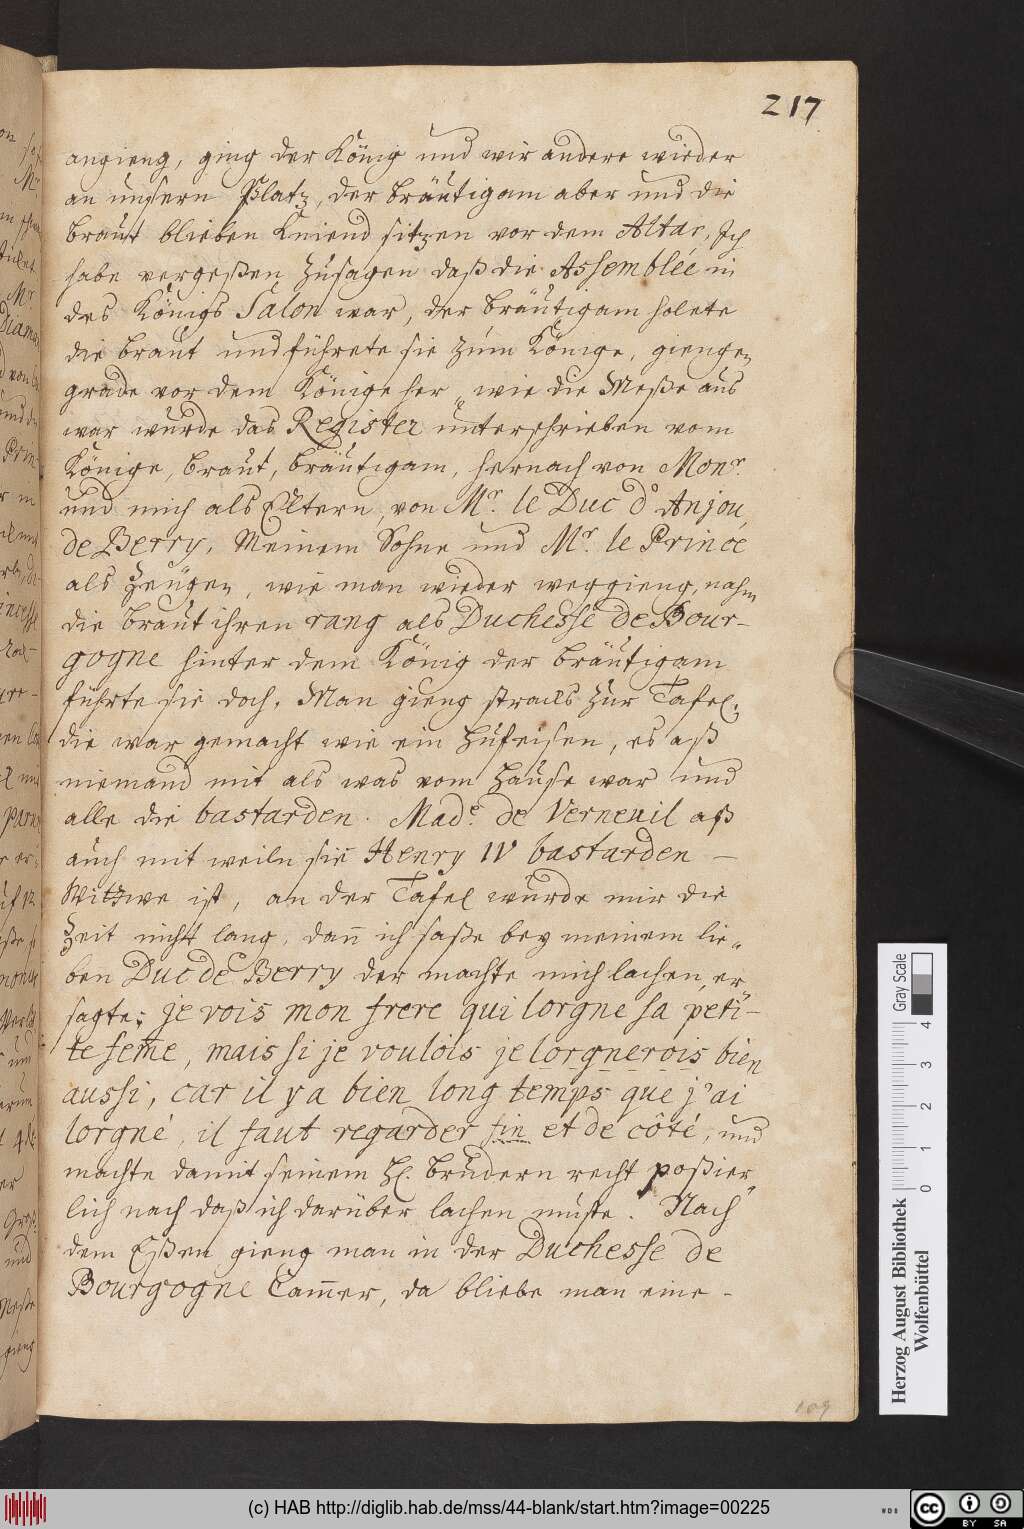 217
angieng, ging der König und wir andere wieder
an unsern Platz, der bräutigam aber und die
braut blieben kniend sitzen vor dem Altar, Ich
habe vergeßen zusagen daß die Assemblée in
des Königs Salon war, der bräutigam holete
die braut und führete sie zum Könige, giengen
grade vor dem Könige her, wie die Meße aus
war wurde das Register unterschrieben vom
Könige, braut, bräutigam, hernach von Monr.
und mich als Eltern, von Mr. le Duc d'Anjou,
de Berry, Meinem Sohne und Mr. le Prince
als Zeügen, wie man wieder weggieng, nahm
die braut ihren rang als Duchesse de Bour-
gogne hinter dem König der bräutigam
führte sie doch. Man gieng stracks zur Tafel;
die war gemacht wie ein Hufeisen, es aß
niemand mit als was vom Hause war und
alle die bastarden. Made. de Verneuil aß
auch mit weiln sie Henry IV bastarden –
Wittwe ist, an der Tafel wurde mir die
Zeit nicht lang, dan̄ ich saße bey meinem lie-
ben Duc de Berry der machte mich lachen, er
sagte: je vois mon frere qui lorgne sa peti-
te fem̄e, mais si je voulois je lorgnerois bien
aussi, car il y a bien long temps que j'ai
lorgné, il faut regarder fin et de côté, und
machte damit seinem H. Brudern recht poßier-
lich nach daß ich darüber lachen muste. Nach
dem Eßen gieng man in der Duchesse de
Bourgogne Cam̄er, da bliebe man eine -
109
Herzog August Bibliothek
Wolfenbüttel
Gray Scale
0 1 2 3 4
(c) HAB http://diglib.hab.de/mss/44-blank/start.htm?image=00225
WDB
cc BY SA